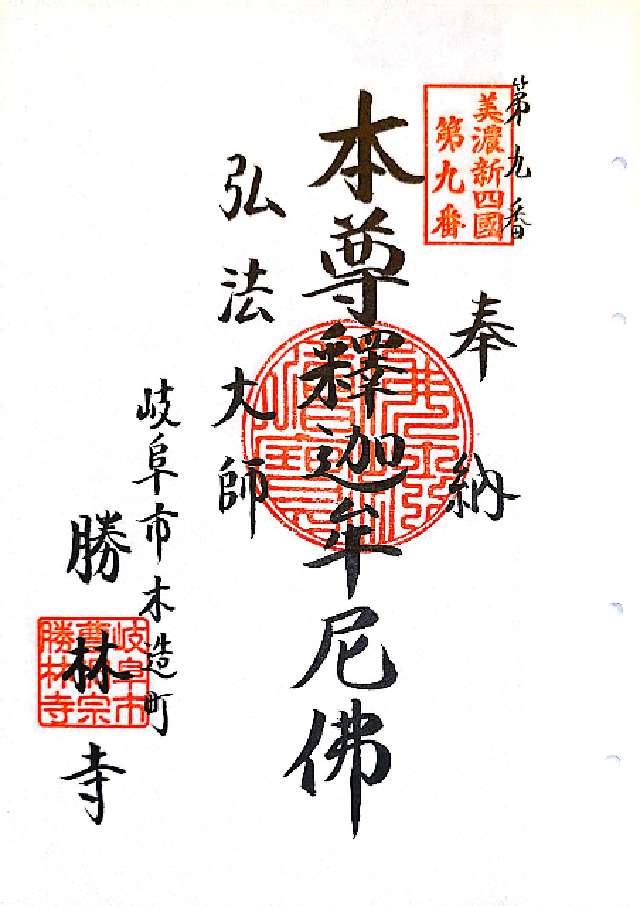 第九番
美濃新四國
第九番
奉納
本尊釋迦牟尼佛
弘法大師
岐阜市木造町
勝林寺
岐阜市
曹洞宗
勝林寺